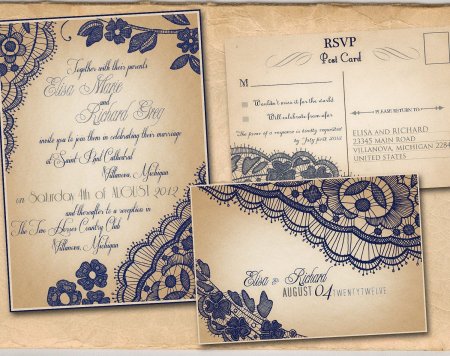 Together with their parents
Elisa Marie
and
Richard Greg
invite you to join them in celebrating their marriage
at Saint Paul Cathedral
Villanova, Michigan
on Saturday 4th of AUGUST 2012
and thereafter to a reception in
The Two Horses Country Club
Villanova, Michigan
RSVP
Post Card
M
Wouldn't miss it for the world
Will celebrate from afar
The favor of a response is kindly requested
by July first 2012
PLEASE RETURN TO
ELISA AND RICHARD
23345 MAIN ROAD
VILLANOVA, MICHIGAN 2284
Elisa & Richard
AUGUST 04 TWENTYTWELVE